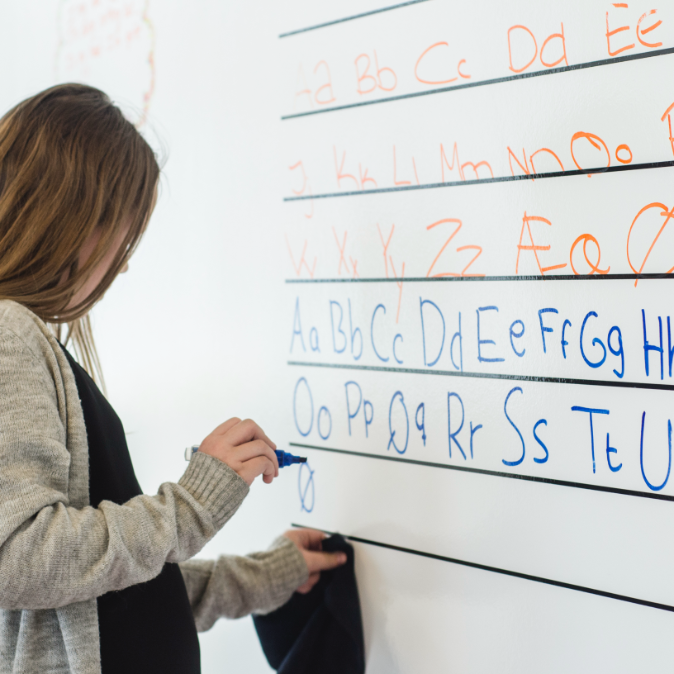 Aa Bb Cc Dd Ee
Jj Kk Ll Mm Nn Oo
W Xx Yy Zz Ææ Ø
Aa Bb Cc Dd Ee Ff Gg Hh
Oo Pp Qq Rr Ss Tt U
Ø